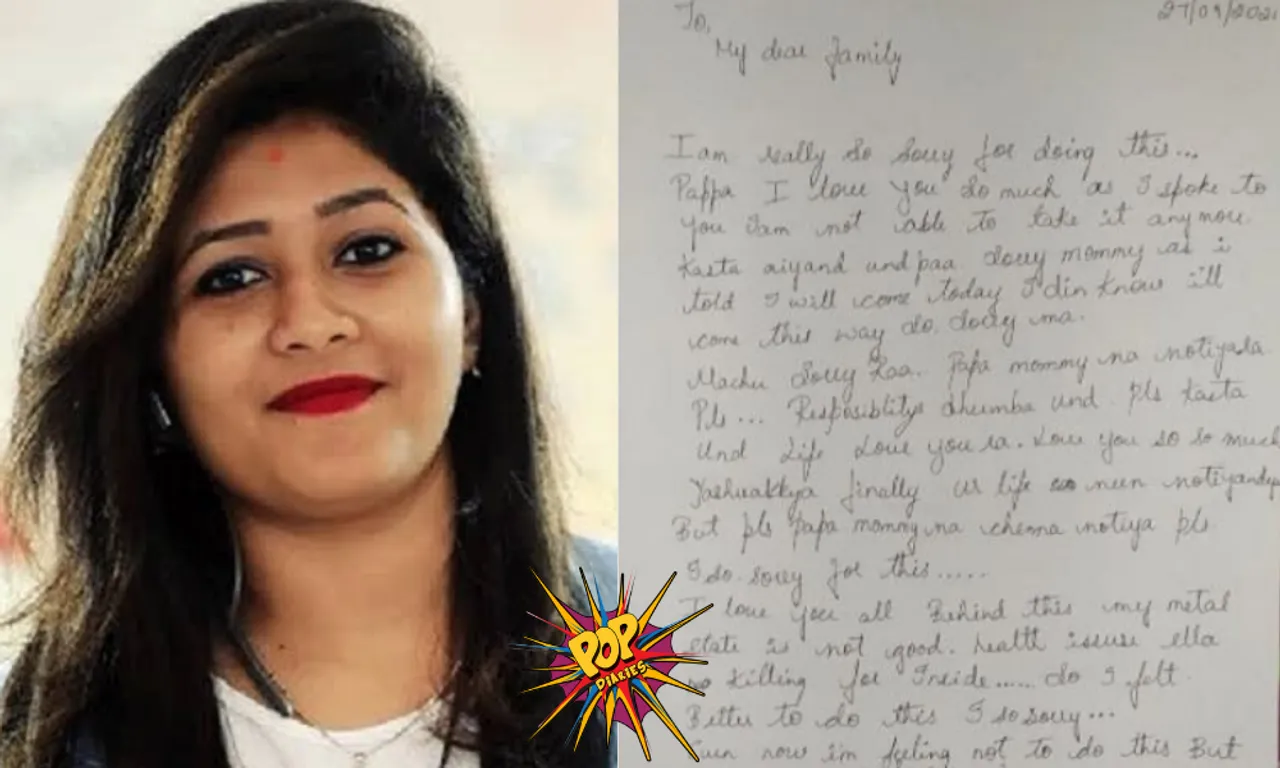 To,
27/09/2021
My dear family
I am really so sorry for doing this...
Pappa I love you so much as I spoke to
you Iam not able to take it anymore.
Kasta aiyand und paa. Sorry mommy as i
told I will come today I din know ill
come this way so. Sorry ma.
Machu Sorry Raa. Papa mommy na notiyada
Pls... Resposiblitys dhumba und. Pls Kasta
Und life Love you ra. Love you so so much
Yashuakkya finally ur life neen notiyandya
But pls papa mommy na chenna notiya pls
I so. sorry for this.....
I love you all Behind this my metal
state is not good. health issuse ella
so killing for Inside..... So I felt
Better to do this I so sorry...
Even now im feeling not to do this But
POP
DIARIES